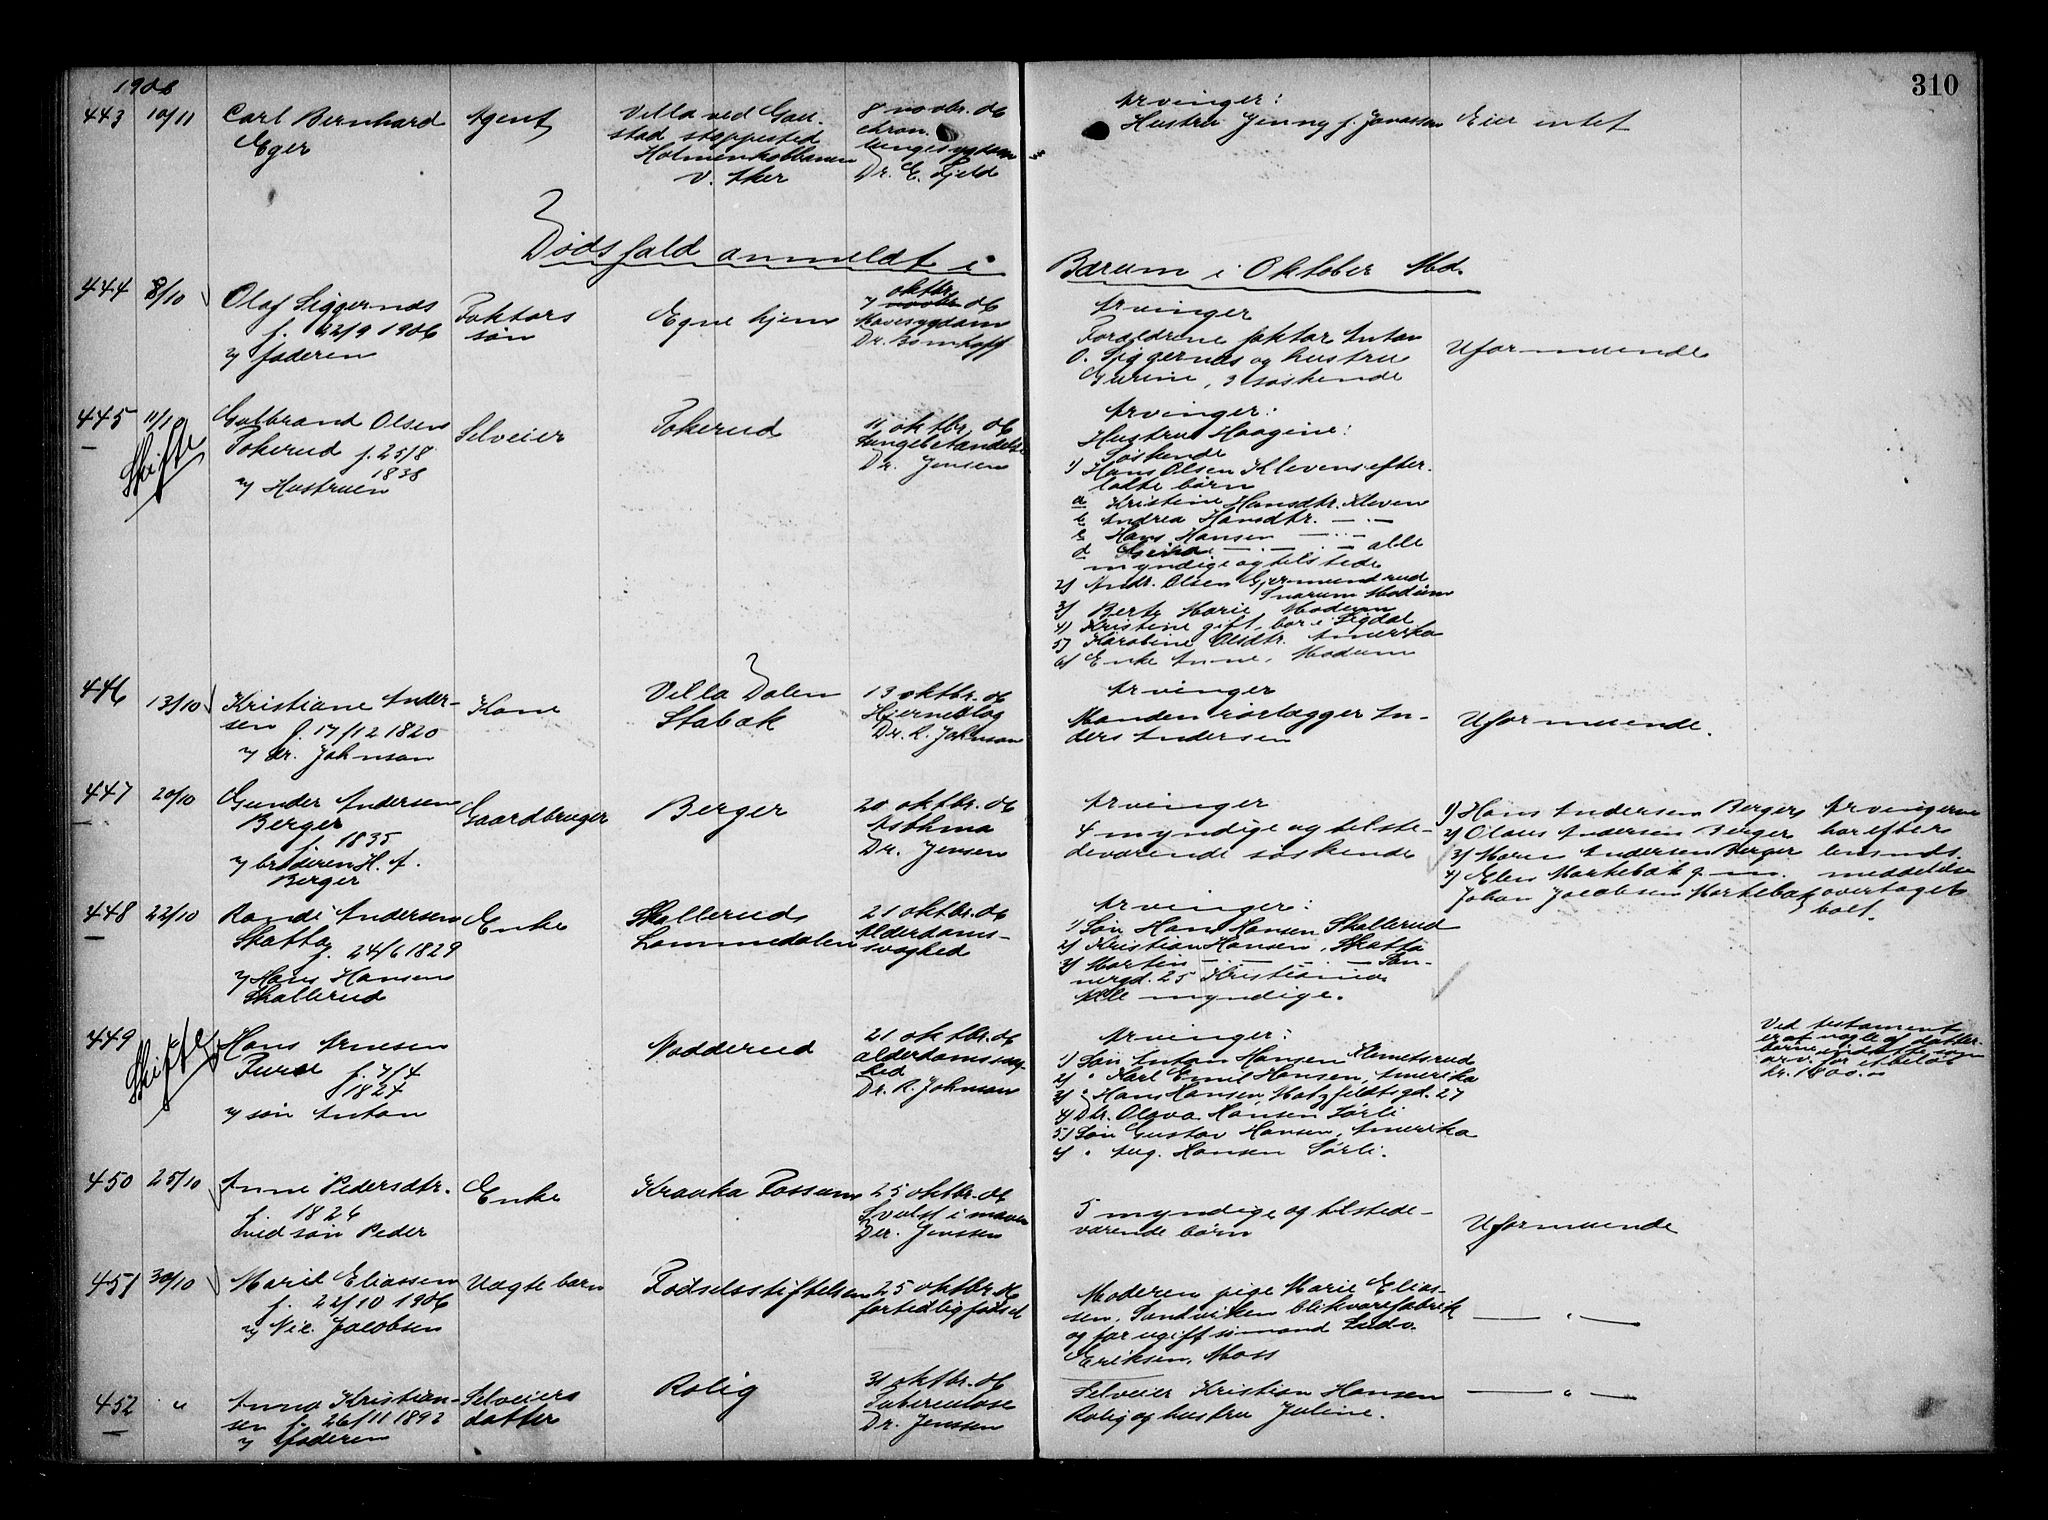 310
1906
443 10/11 Carl Bernhard
Eger
Agent
Villa ved Gau-
stad stoppested
Holmenkolbanen
V. Aker
8 novbr. 06
chron.
lungesygdom
Dr. E. Fjeld
Arvinger:
Hustru Jenny f. Jonassen
Eier intet
Dødsfald anmeldt i Bærum i Oktober Md.
444 8/10 Olaf Siggernæs
f. 22/9 1906
v/ faderen
Faktors
søn
Egne hjem
7 oktbr. 06
Mavesygdom
Dr. Bomhoff
Arvinger
Forældrene faktor Anton
O. Siggernæs og hustru
Gurine, 3 søskende
Uformuende
445 11/10 Gulbrand Olsen
Tokerud f. 25/8
1838
v/ Hustruen
Skifte
Selveier
Tokerud
11 oktbr. 06
Lungebetændelse
Dr. Jensen
Arvinger:
Hustru Haagine:
Søskende
1) Hans Olsen Klevens efter-
latte børn
a Kristine Hansdtr. Kleven
b Andrea Hansdtr. — " —
c Hans Hansen — " —
d — " — alle
myndige og tilstede
2) Andr. Olsen Gjermundrud
Snarum Modum
3) Berte Marie, Modum
4) Kristine gift, bor i Sigdal
5) Karoline Olsdtr. Amerika
6) Enke Anne, Modum
446 13/10 Kristiane Ander-
sen f. 17/12 1820
v/ Dr. Johnson
Kone
Villa Dalen
Stabæk
13 oktbr. 06
Hjerneslag
Dr. R. Johnson
Arvinger
Manden rørlægger An-
ders Andersen
Uformuende.
447 20/10 Gunder Andersen
Berger
f. 1835
v/ broderen H. A.
Berger
Gaardbruger
Berger
20 oktbr. 06
Asthma
Dr. Jensen
Arvinger
4 myndige og tilste-
deværende søskende
1) Hans Andersen Berger
2) Olaus Andersen Berger
3) Maren Andersen Berger
4) Elen Mortebæk g. m.
Johan Jacobsen Mortebæk
Arvingerne
har efter
lensmds.
meddelelse
overtaget
boet.
448 22/10 Randi Andersen
Skotta
f. 24/6 1829
v/ Hans Hansen
Skollerud
Enke
Skollerud
Lommedalen
21 oktbr. 06
Alderdoms-
svaghed
Arvinger:
1) Søn Hans Hansen Skollerud
2) Kristian Hansen, Skotta
3) Martin — " — " — San-
nergd. 25 Kristiania
Alle myndige.
449 Hans Arnesen
Furu f. 7/4
1827
v/ søn Anton
Skifte
Nadderud
21 oktbr. 06
alderdomssvag-
hed
Dr. R. Johnson
Arvinger:
1) Søn Anton Hansen Klemetsrud
2) " Karl Emil Hansen, Amerika
3) " Hans Hansen, Motzfeldtsgd. 27
4) Dtr. Olava Hansen Sørli
5) Søn Gustav Hansen, Amerika
6) " Aug. Hansen Sørli.
Ved testament
er at nogle af datter-
børn
arv. for et beløb
kr. 1800.—
450 25/10 Anne Pedersdtr.
f. 1826
ved søn Peder
Enke
Kraaka Fossum
25 oktbr. 06
Svulst i maven
Dr. Jenssen
5 myndige og tilstede-
værende børn
Uformuende
451 30/10 Marit Eliassen
f. 22/10 1906
v/ Nic. Jacobsen
Uægte barn
Fødselsstiftelsen
25 oktbr. 06
fortidlig fødsel
Moderen pige Marie Elias-
sen, Sandviken blikvarefabrik
og far ugift sømand Ludv.
Eriksen, Moss
— " —
452 " Anna Kristian-
sen f. 26/11 1893
v/ faderen
Selveiers
datter
Rolig
31 oktbr. 06
Tuberculose
Dr. Jenssen
Selveier Kristian Hansen
Rolig og hustru Juline.
— " —